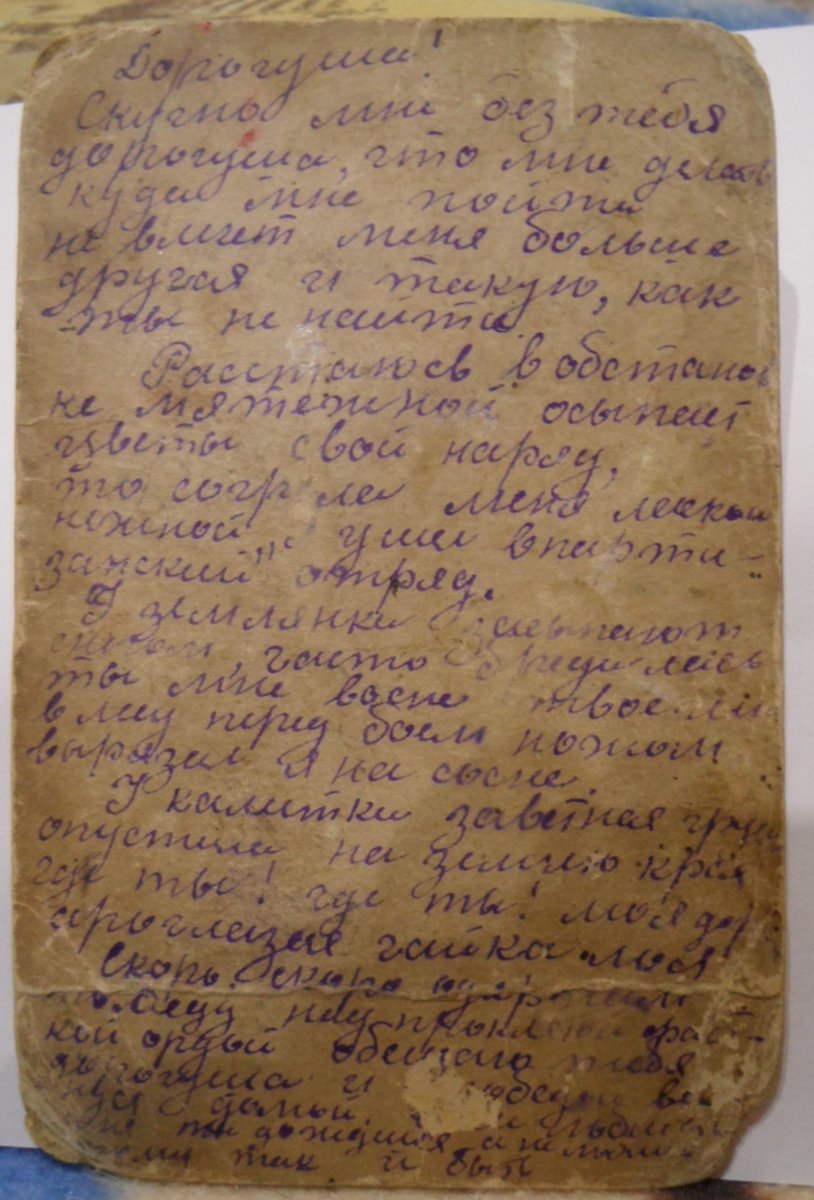 Дорогуша!
Скучно мне без тебя
дорогуша, что мне делать
куда мне пойти
не влечет меня больше
другая и такую, как
ты не найти.
Расстаюсь в обстанов
ке мятежной осыпает
цветы свой наряд,
то согрела меня лаской
нежной, ушла в парти-
занский отряд.
У землянки засыпают
снегом, часто
ты мне во сне твое имя
в лесу перед боем ножом
вырезал я на сосне.
У калитки заветная груша
опустила на землю края
где ты! где ты! моя дор
ароглазая чайка моя
Скоро скоро одержим
победу над проклятой фаш-
кой ордой обещаю тебя
дорогуша и победы
домой
ты дождешся а
так и быть